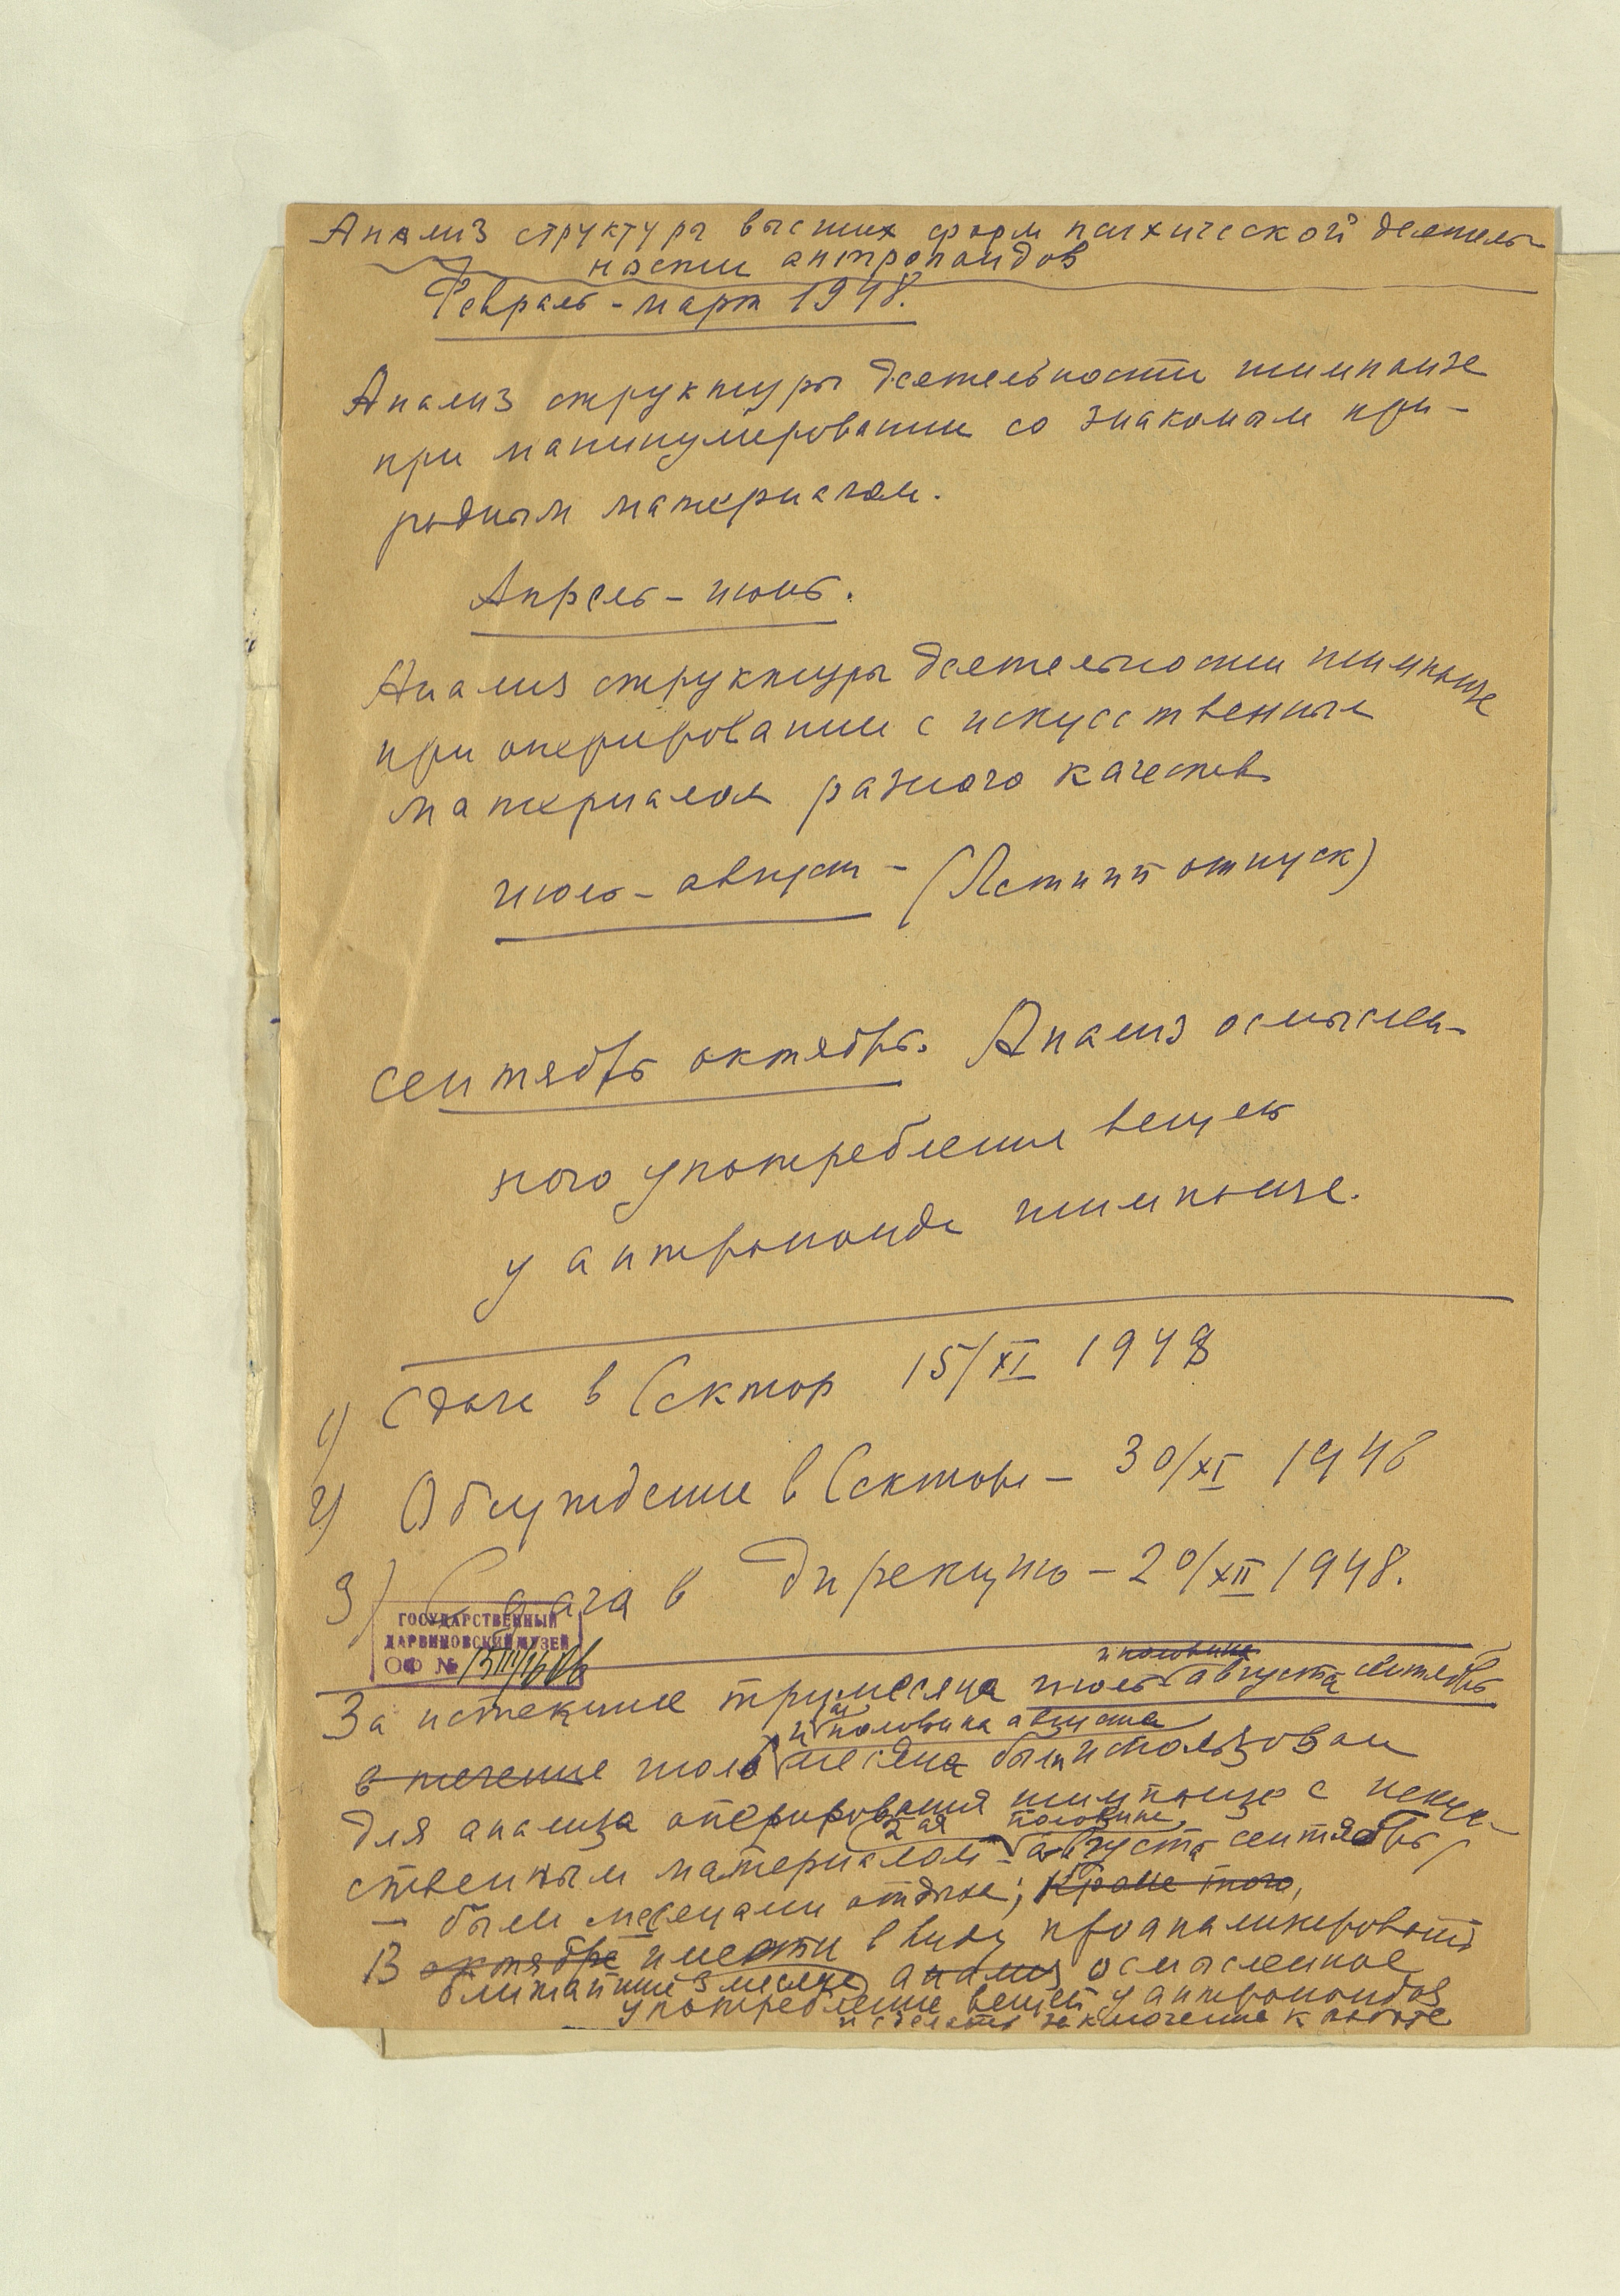 Анализ структуры высших форм психической деятель-
ности антропоидов
Февраль - март 1948.
Анализ структуры деятельности шимпанзе
при манипулировании со знакомым при-
родным материалом.
Апрель - июнь.
Анализ структуры деятельности шимпанзе
при оперировании с искусственным
материалом разного качества
июль - август - (Летний отпуск)
сентябрь октябрь. Анализ осмыслен-
ного употребления вещей
у антропоида шимпанзе.
1) Сдача в Сектор 15/XI 1948
2) Обсуждение в Секторе - 30/XI 1948
3) Сдача в Дирекцию - 20/XII 1948.
ГОСУДАРСТВЕННЫЙ
ДАРВИНОВСКИЙ МУЗЕЙ
ОФ №
и половина
За истекшие три месяца июль августа сентябрь
и половина августа
в течение июль месяца были использован
для анализа оперирования шимпанзе с искус-
2ая половине
ственным материалом - августа сентябрь
- были месяцами отдыха; Кроме того,
В октябре имеем в виду проанализировать
ближайшие 3 месяца анализ осмысленное
употребление вещей у антропоидов
и сделать заключение к работе